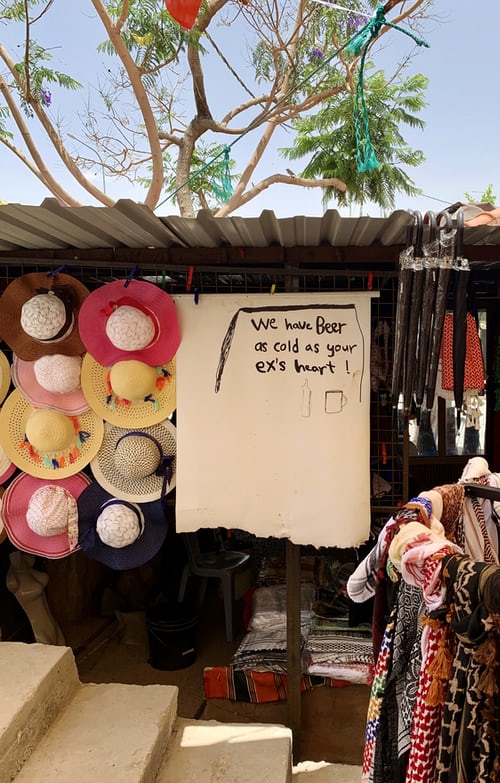 We have Beer
as cold as your
ex's heart !